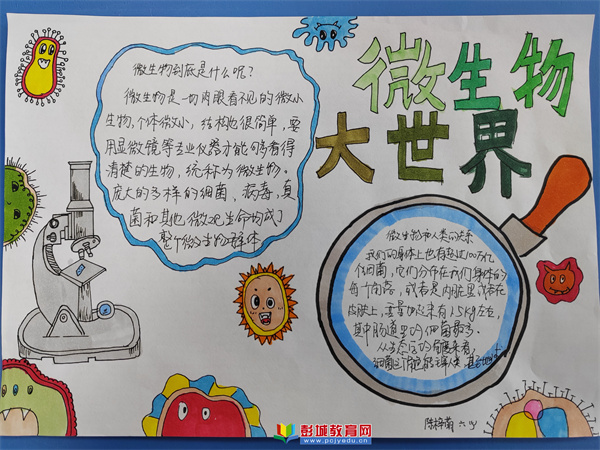 微生物
大世界
微生物到底是什么呢？
微生物是一切肉眼看不见的微小
生物，个体微小，结构也很简单，要
用显微镜等专业仪器才能够看得
清楚的生物，统称为微生物。
庞大的多样的细菌，病毒，真
菌和其他微观生命构成了
整个微生物群体
微生物和人类的关系
我们的身体上也有超过100万亿
个细菌，它们分布在我们身体的
每个角落，或者是内脏里或者在
皮肤上，要是加起来有1.5kg左右，
其中肠道里的细菌最多。
从生态区的角度来看，
细菌三
陈梓
彭城教育网
www.pcjyedu.cn